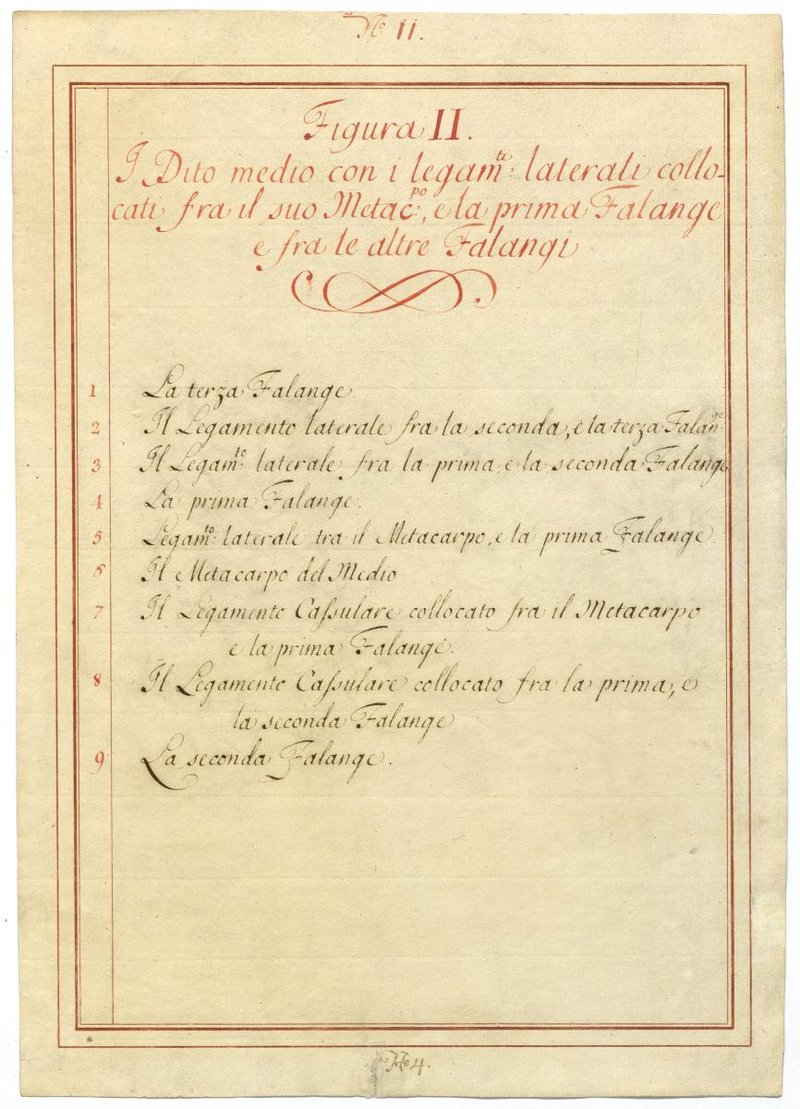 No II.
Figura II.
Il Dito medio con i legam.te laterali collo-
cati fra il suo Metac.po, e la prima Falange
e fra le altre Falangi
1 La terza Falange
2 Il Legamento laterale fra la seconda, e la terza Falan.ge
3 Il Legam.to laterale fra la prima, e la seconda Falange
4 La prima Falange.
5 Legam.to laterale tra il Metacarpo, e la prima Falange.
6 Il Metacarpo del Medio
7 Il Legamento Cassulare collocato fra il Metacarpo
e la prima Falange.
8 Il Legamento Cassulare collocato fra la prima, e
la seconda Falange
9 La seconda Falange.
No 4.